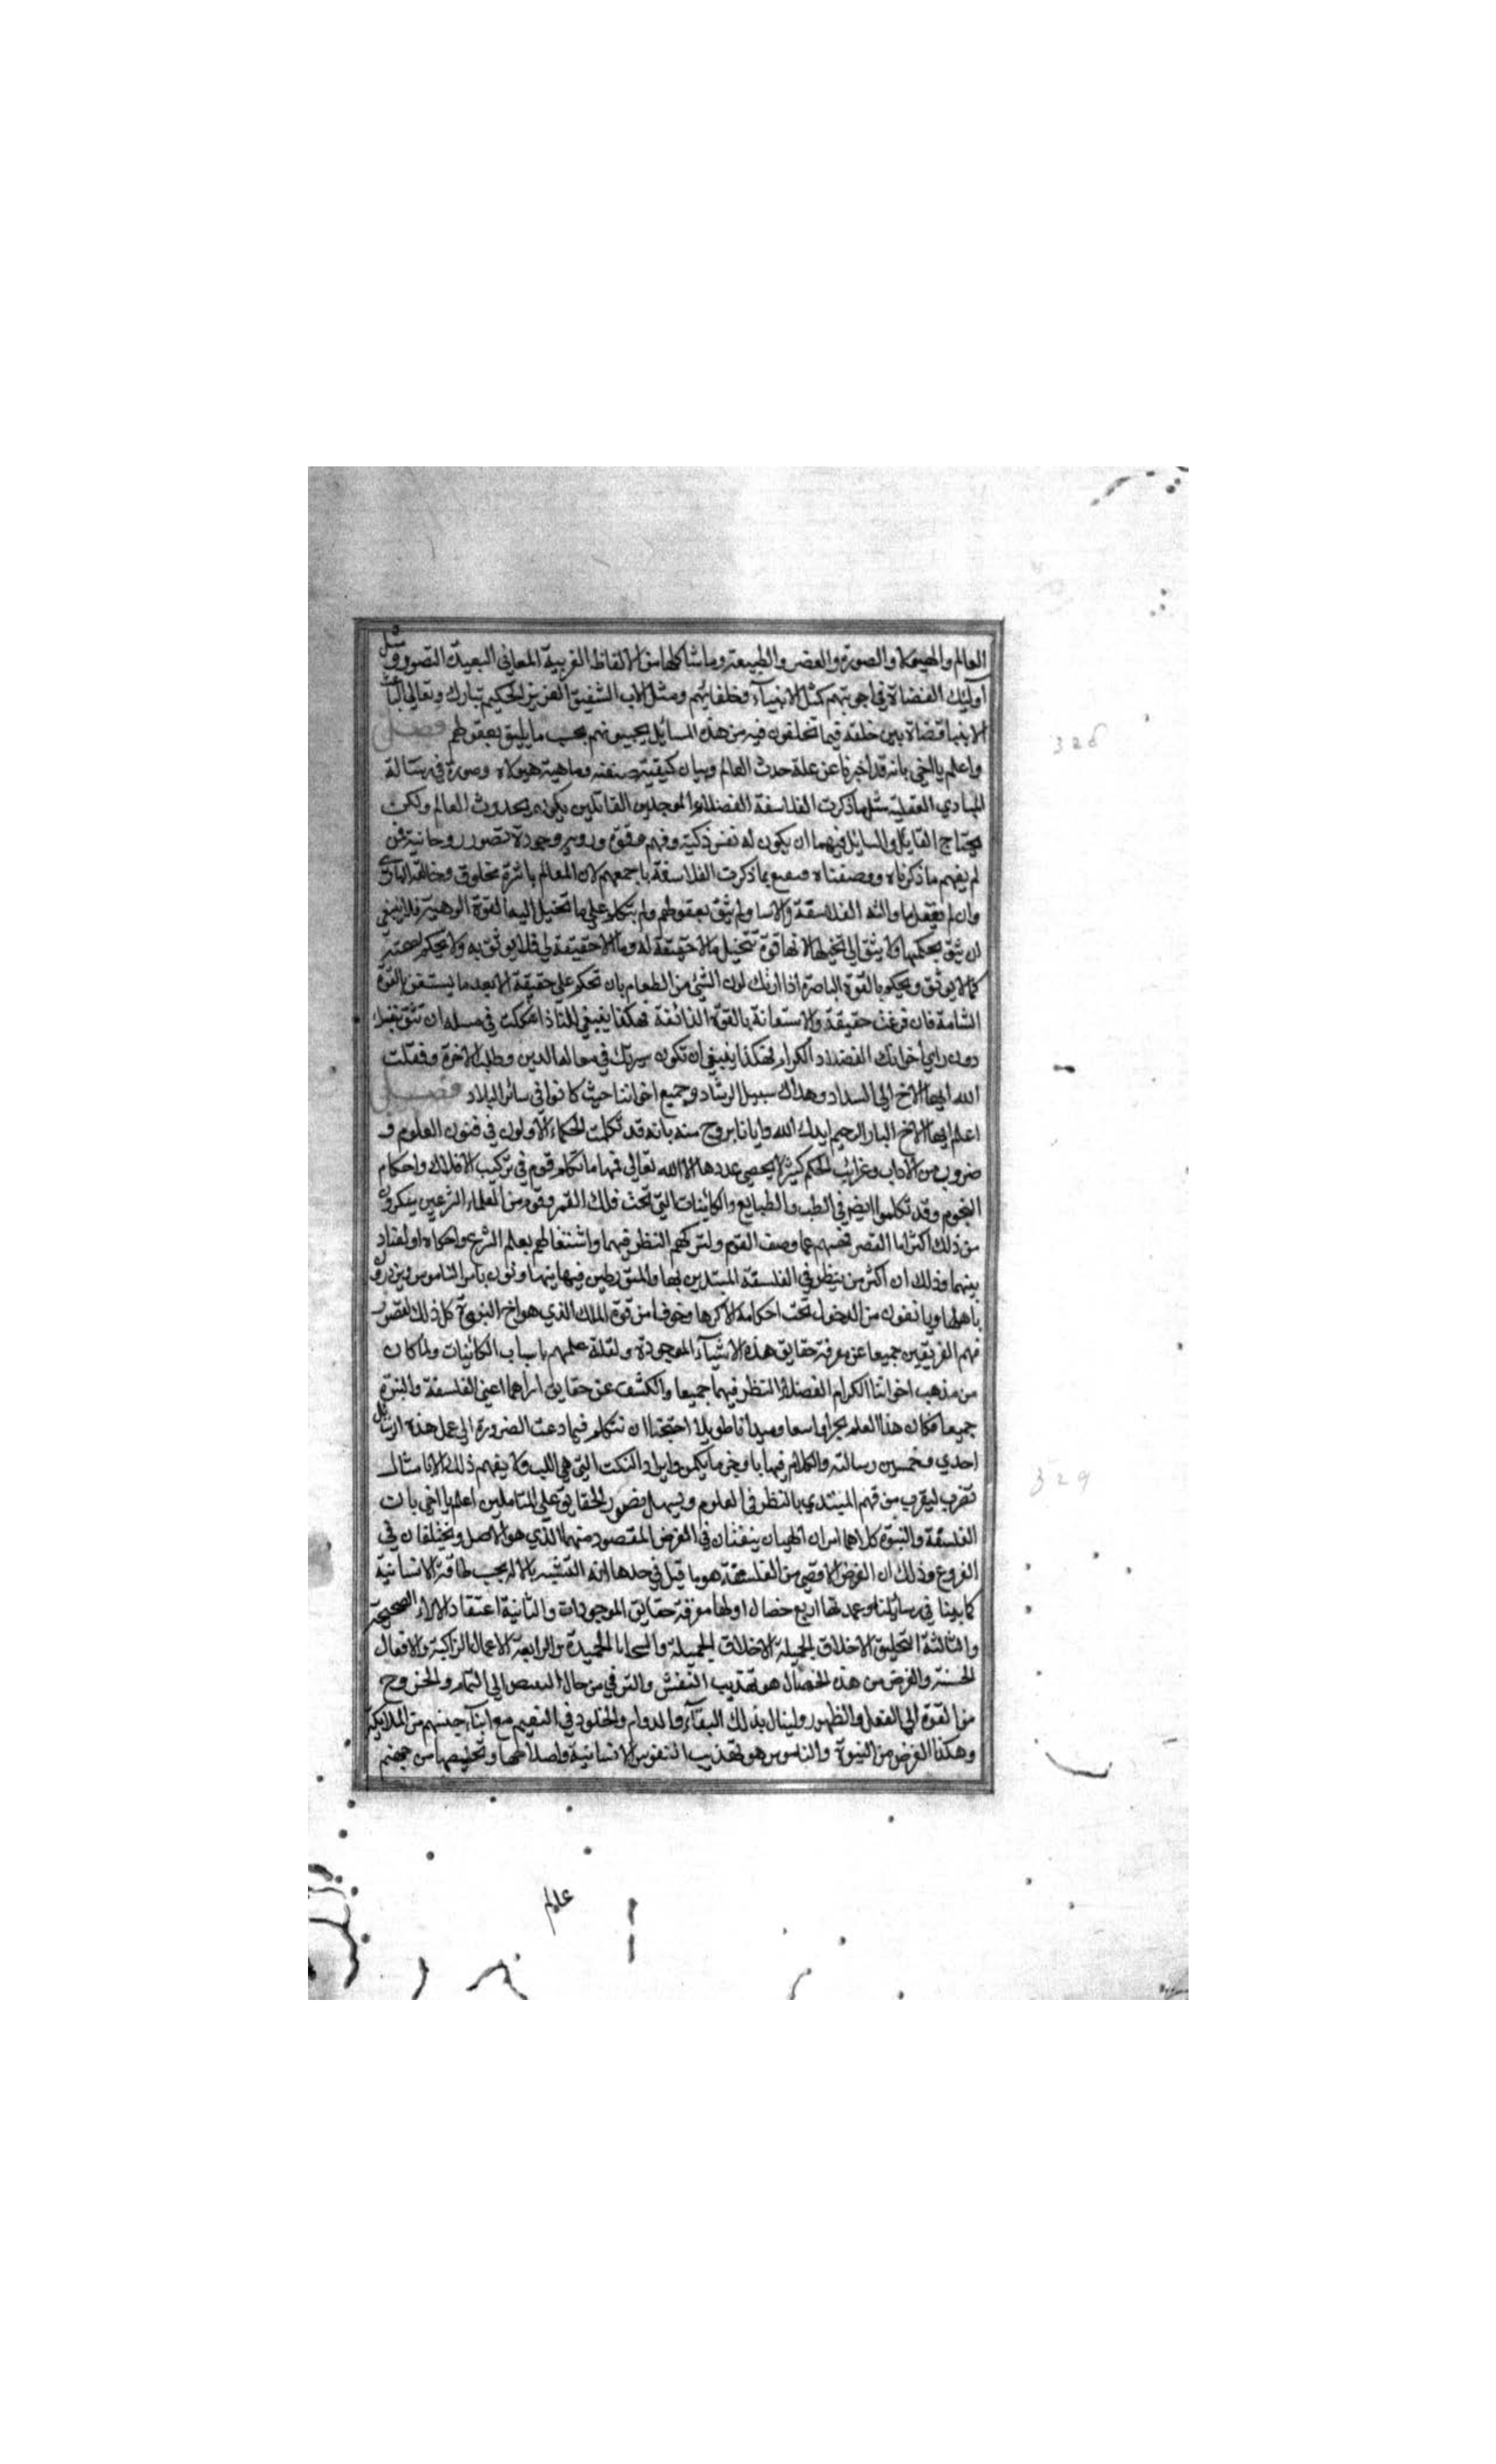 العالم والهيولا والصورة والعنصر والطبيعة وما شاكلها من الالفاظ الغريبة المعاني البعيدة التصور ومثل
اوليك القضاة في اجوبتهم كمثل الانبيآء وخلفايهم ومثل الاب الشفيق العزيز الحكيم تبارك وتعالي الباعث
الانبيا قضاة بين خلقه فيما تختلفون فيه من هذه المسايل يجيبونهم بحسب ما يليق بعقولهم فصل
واعلم يا اخي بانه قد اخبرنا عن علة حدث العالم وبيان كيفية صنعته وماهية هيولاه وصورة في رسالة
المبادي العقلية مثل ما ذكرت الفلاسفة الفضلاء الموحدين القائلين بحدوث العالم ولكن
يحتاج القايل والسايل فيهما ان يكون له نفس ذكية وفهم ودقة وروية وجودة تصور روحانية فمن
لم يفهم ما ذكرناه ووصفناه بما ذكرت الفلاسفة باجمعهم لان العالم باثره مخلوق وخالقه الباري
وان لم يعقل ما قالته الفلاسفة والانبيا ولم يثق بعقولهم ولم يتكل علي ما تخيل اليه القوة الوهمية فلا ينبغي
ان يثق بحكمها ولا يثق الي تخيلها لانها قوة تتخيل ما لا حقيقة له وما لا حقيقة له فلا يوثق به ولا يحكم بصحته
كما لا يوثق ويحكم بالقوة الباصرة اذا ارتك لون الشئ من الطعام بان تحكم علي حقيقة الا بعد ما يستعين القوة
الشامة فان حقيقة والاستعانة بالقوة الذائقة فهكذا ينبغي لك اذا شككت في مسلة ان تثق بنفسك
دون راي اخوانك الفضلاء الكرام فهكذا ينبغي ان تكون سيرتك في معالم الدين وطلب الاخرة وفقك
الله ايها الاخ الي السداد وهداك سبيل الرشاد وجميع اخواننا حيث كانوا في سائر البلاد فصل
اعلم ايها الاخ البار الرحيم ايدك الله وايانا بروح منه بانه قد تكلمت الحكماء الاولون في فنون العلوم و
ضروب من الآداب وغرائب الحكم كثيرا لا يحصي عددها الا الله تعالي فمنها ما تكلم قوم في تركيب الافلاك واحكام
النجوم وقد تكلموا ايضا في الطب والطبايع والكائنات التي تحت فلك القمر وقوم من العلماء الشرعيين ينكرون
من ذلك اكثر اما لقصر فهمهم عما وصف القوم ولتركهم النظر فيهما واشتغالهم بعلم الشرع واحكامه او لعناد
بينهما وذلك ان اكثر من ينظر في الفلسفة المبتدين بها والمتوسطين فيها يتهاونون بامر الناموس ويزرون
باهلها ويانفون من الدخول تحت احكامه الا كرها وخوفا من قوة الملك الذي هو اخ النبوة كل ذلك لقصر
فهم الفريقين جميعا عن معرفة حقايق هذه الاشيآء الموجودة ولقلة علمهم باسباب الكائنات ولما كان
من مذهب اخواننا الكرام الفضلاء النظر فيهما جميعا والكشف عن حقايق اراهما اعني الفلسفة والنبوة
جميعا وكان هذا العلم بحرا واسعا وميدانا طويلا احتجنا ان نتكلم فيما دعت الضرورة الي عمل هذه الرسايل
احدي وخمسين رسالة والكلام فيها باوجز ما يمكن وايراد النكت التي هي اللب ولا يفهم ذلك الا بامثال
تضرب ليقرب من فهم المبتدي بالنظر في العلوم ويسهل تصور الحقايق علي المتاملين اعلم يا اخي بان
الفلسفة والنبوة كلاهما امران الهيان يتفقان في الغرض المقصود منهما الذي هو الاصل ويختلفان في
الفروع وذلك ان الغرض الاقصي من الفلسفة هو ما قيل في حدها انه التشبه بالاله بحسب طاقة الانسانية
كما بينا في رسائلنا وعمدتها اربع خصال اولها معرفة حقايق الموجودات والثانية اعتقاد الاراء الصحيحة
والثالثة التخليق الاخلاق الجميلة الاخلاق الجميلة والسجايا الحميدة والرابعة الاعمال الزاكية والافعال
الحسنة والغرض من هذه الخصال هو تهذيب النفس والترقي من حال النقص الي التمام والخروج
من القوة الي الفعل والظهور ولينال بذلك البقآء والدوام والخلود في النعيم مع ابنآء جنسهم من الملايكة
وهكذا الغرض من النبوة والناموس هو تهذيب النفوس الانسانية واصلاحها وتخليصها من جهنم
عالم
328
329